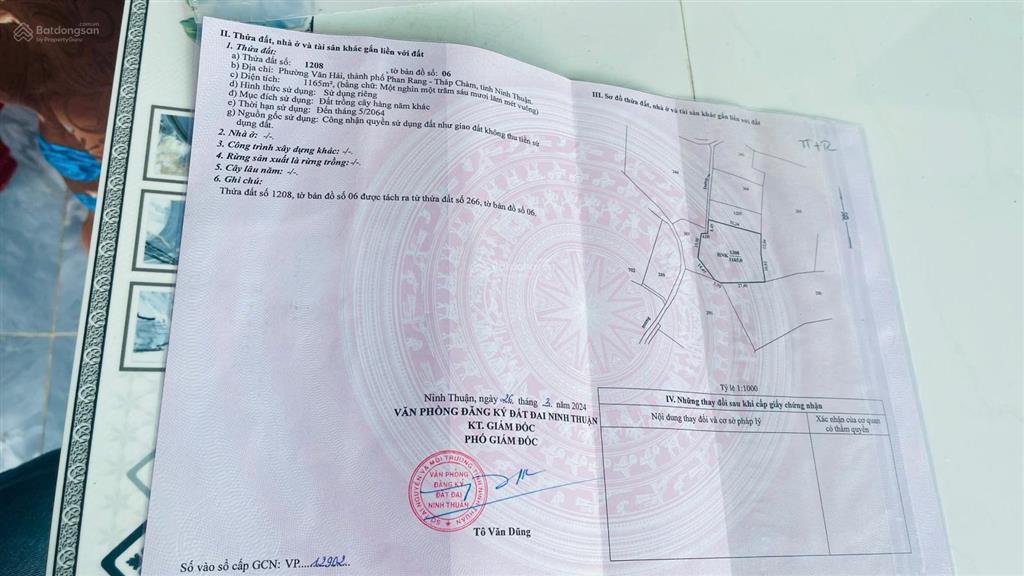 Batdongsan
.com.vn
by PropertyGuru
II. Thửa đất, nhà ở và tài sản khác gắn liền với đất
1. Thửa đất:
a) Thửa đất số: 1208 , tờ bản đồ số: 06
b) Địa chỉ: Phường Văn Hải, thành phố Phan Rang - Tháp Chàm, tỉnh Ninh Thuận.
c) Diện tích: 1165m², (bằng chữ: Một nghìn một trăm sáu mươi lăm mét vuông)
d) Hình thức sử dụng: Sử dụng riêng
đ) Mục đích sử dụng: Đất trồng cây hàng năm khác
e) Thời hạn sử dụng: Đến tháng 5/2064
g) Nguồn gốc sử dụng: Công nhận quyền sử dụng đất như giao đất không thu tiền sử
dụng đất.
2. Nhà ở: -/-.
3. Công trình xây dựng khác: -/-.
4. Rừng sản xuất là rừng trồng: -/-.
5. Cây lâu năm: -/-.
6. Ghi chú:
Thửa đất số 1208, tờ bản đồ số 06 được tách ra từ thửa đất số 266, tờ bản đồ số 06.
Ninh Thuận, ngày 26 tháng 3 năm 2024
VĂN PHÒNG ĐĂNG KÝ ĐẤT ĐAI NINH THUẬN
KT. GIÁM ĐỐC
PHÓ GIÁM ĐỐC
SỞ TÀI NGUYÊN VÀ MÔI TRƯỜNG TỈNH NINH THUẬN
VĂN PHÒNG
ĐĂNG KÝ
ĐẤT ĐAI
NINH THUẬN
Tô Văn Dũng
Số vào sổ cấp GCN: VP....12902..
III. Sơ đồ thửa đất, nhà ở và tài sản khác gắn liền với đất
TT+R
1208
BNK
1165.0
702
Tỷ lệ 1:1000
IV. Những thay đổi sau khi cấp giấy chứng nhận
Nội dung thay đổi và cơ sở pháp lý
Xác nhận của cơ quan
có thẩm quyền